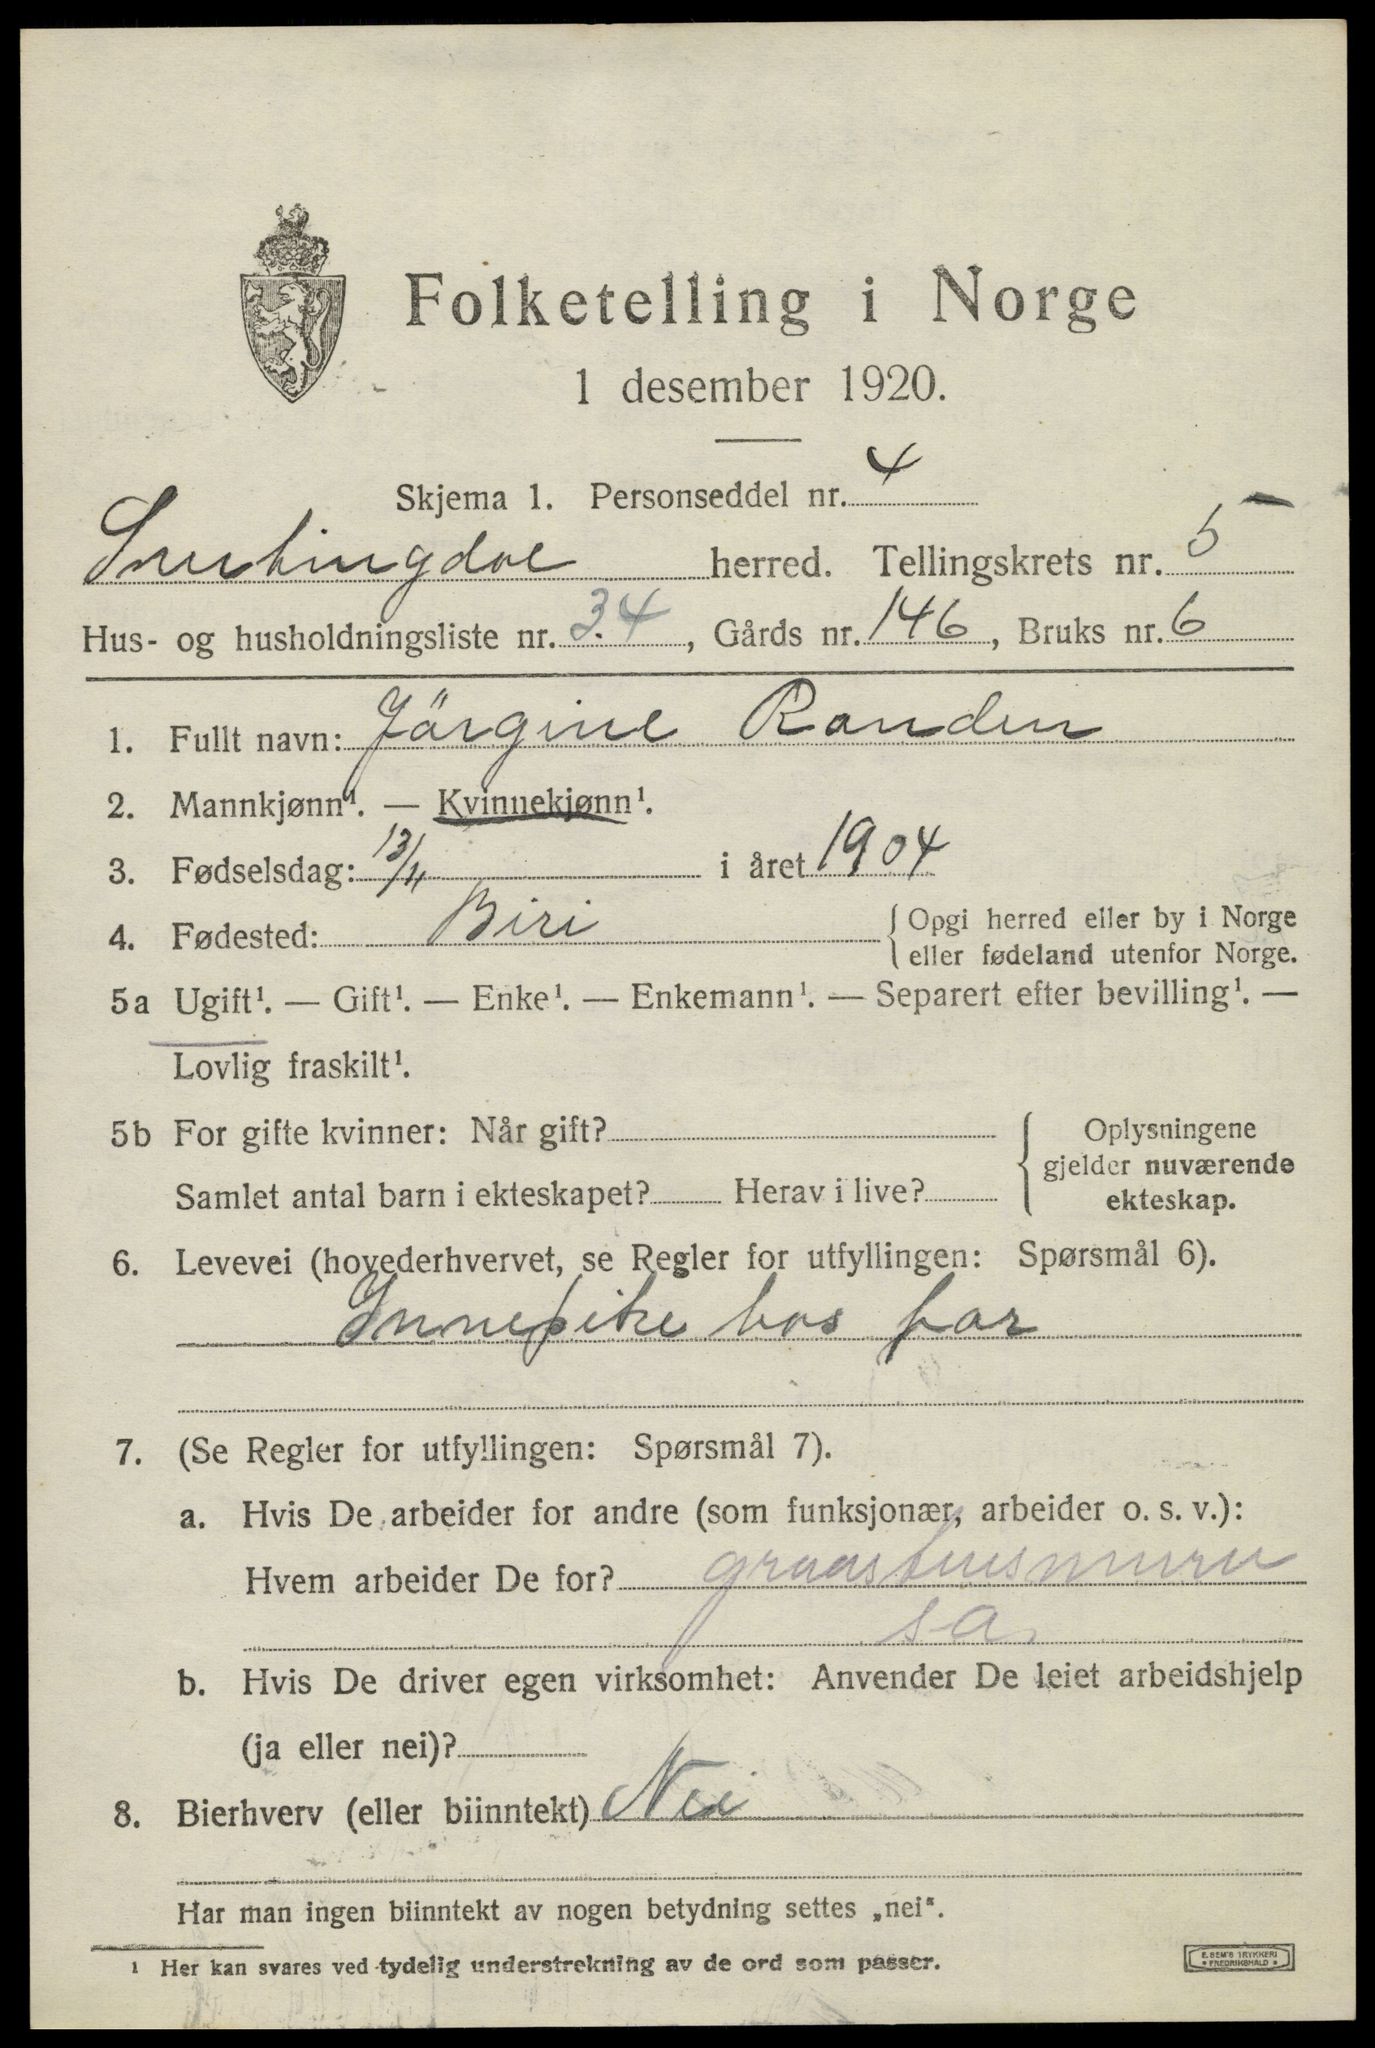 Folketelling i Norge
1 desember 1920.
Skjema 1. Personseddel nr. 4
Snertingdal herred. Tellingskrets nr. 5
Hus- og husholdningsliste nr. 34, Gårds nr. 146, Bruks nr. 6
1. Fullt navn: Jörgine Randen
2. Mannkjønn¹. — Kvinnekjønn¹.
3. Fødselsdag: 13/11 i året 1904
4. Fødested: Biri { Opgi herred eller by i Norge
eller fødeland utenfor Norge.
5a Ugift¹. — Gift¹. — Enke¹. — Enkemann¹. — Separert efter bevilling¹. —
Lovlig fraskilt¹.
5b For gifte kvinner: Når gift? { Oplysningene
gjelder nuværende
Samlet antal barn i ekteskapet? Herav i live? ekteskap.
6. Levevei (hovederhvervet, se Regler for utfyllingen: Spørsmål 6).
Innepike hos far
7. (Se Regler for utfyllingen: Spørsmål 7).
a. Hvis De arbeider for andre (som funksjonær, arbeider o. s. v.):
Hvem arbeider De for?
sa.
b. Hvis De driver egen virksomhet: Anvender De leiet arbeidshjelp
(ja eller nei)?
8. Bierhverv (eller biinntekt) Nei
Har man ingen biinntekt av nogen betydning settes „nei“.
¹ Her kan svares ved tydelig understrekning av de ord som passer.
E. SEM'S TRYKKERI
FREDRIKSHALD